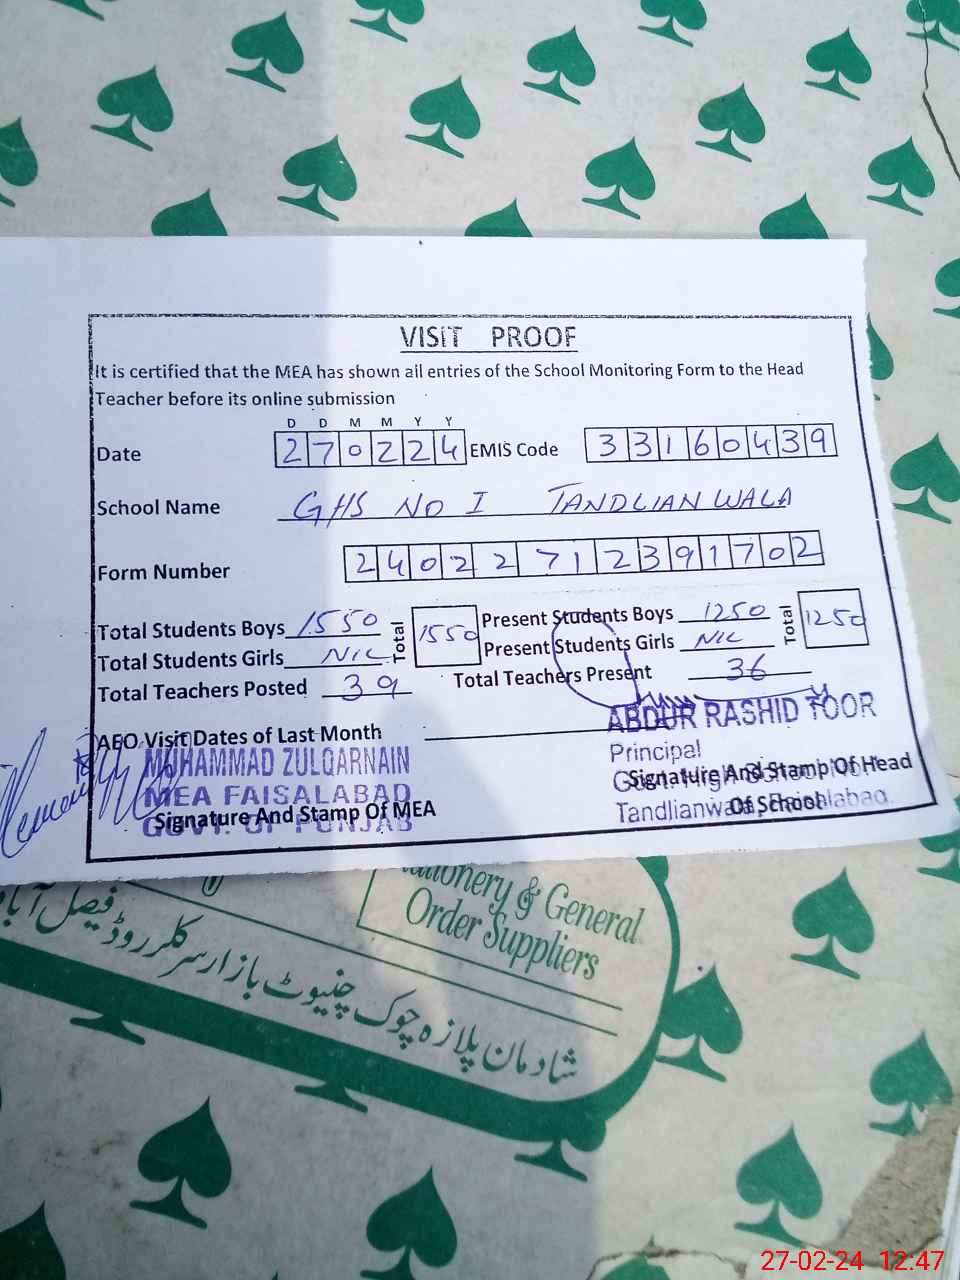 VISIT PROOF
It is certified that the MEA has shown all entries of the School Monitoring Form to the Head
Teacher before its online submission
D D M M Y Y
Date 270224 EMIS Code 33160439
School Name GHS NO I TANDLIANWALA
Form Number 24022712391702
Total Students Boys 1550 Total 1550 Present Students Boys 1250 Total 1250
Total Students Girls NIL Present Students Girls NIL
Total Teachers Posted 39 Total Teachers Present 36
AEO Visit Dates of Last Month
ABDUR RASHID TOOR
Principal
Govt. High School No.
Tandlianwala, Faisalabad.
Signature And Stamp Of Head
Of School
MUHAMMAD ZULQARNAIN
MEA FAISALABAD
GOVT. OF PUNJAB
Signature And Stamp Of MEA
Stationery & General
Order Suppliers
شادمان پلازہ چوک چنیوٹ بازار سرکلر روڈ فیصل آباد
27-02-24 12:47